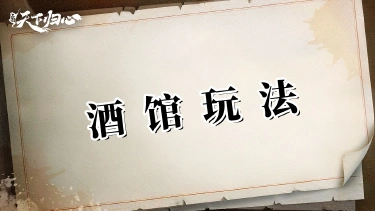 天下归心
酒馆玩法